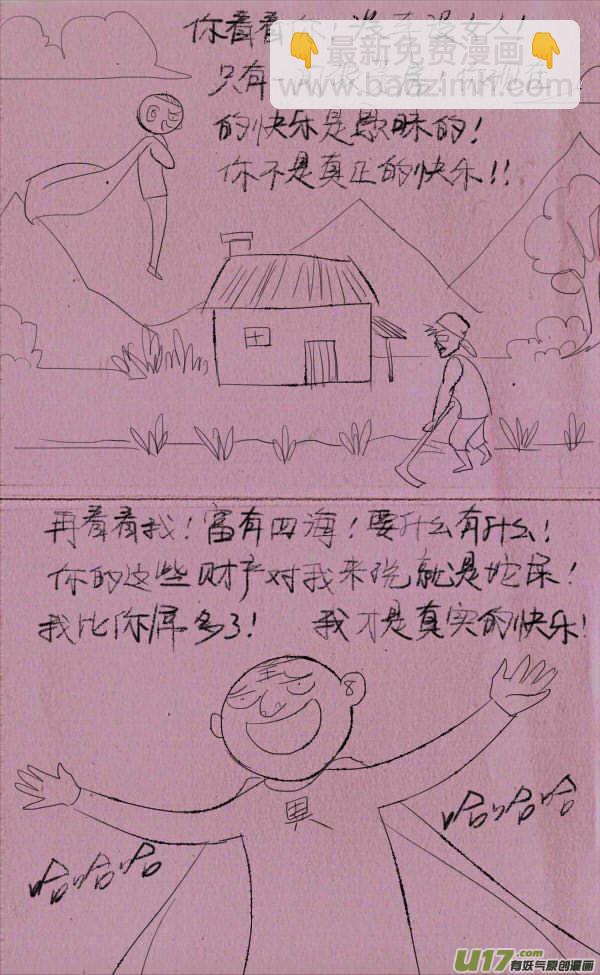 你看看你！没车没女人！
最新免费漫画
只有
www.baozimh.com
的快乐是愚昧的！
你不是真正的快乐！！
再看看我！富有四海！要什么有什么！
你的这些财产对我来说就是坨屎！
我比你屌多了！ 我才是真实的快乐！
哈哈哈
哈哈哈
U17.com
有妖气原创漫画